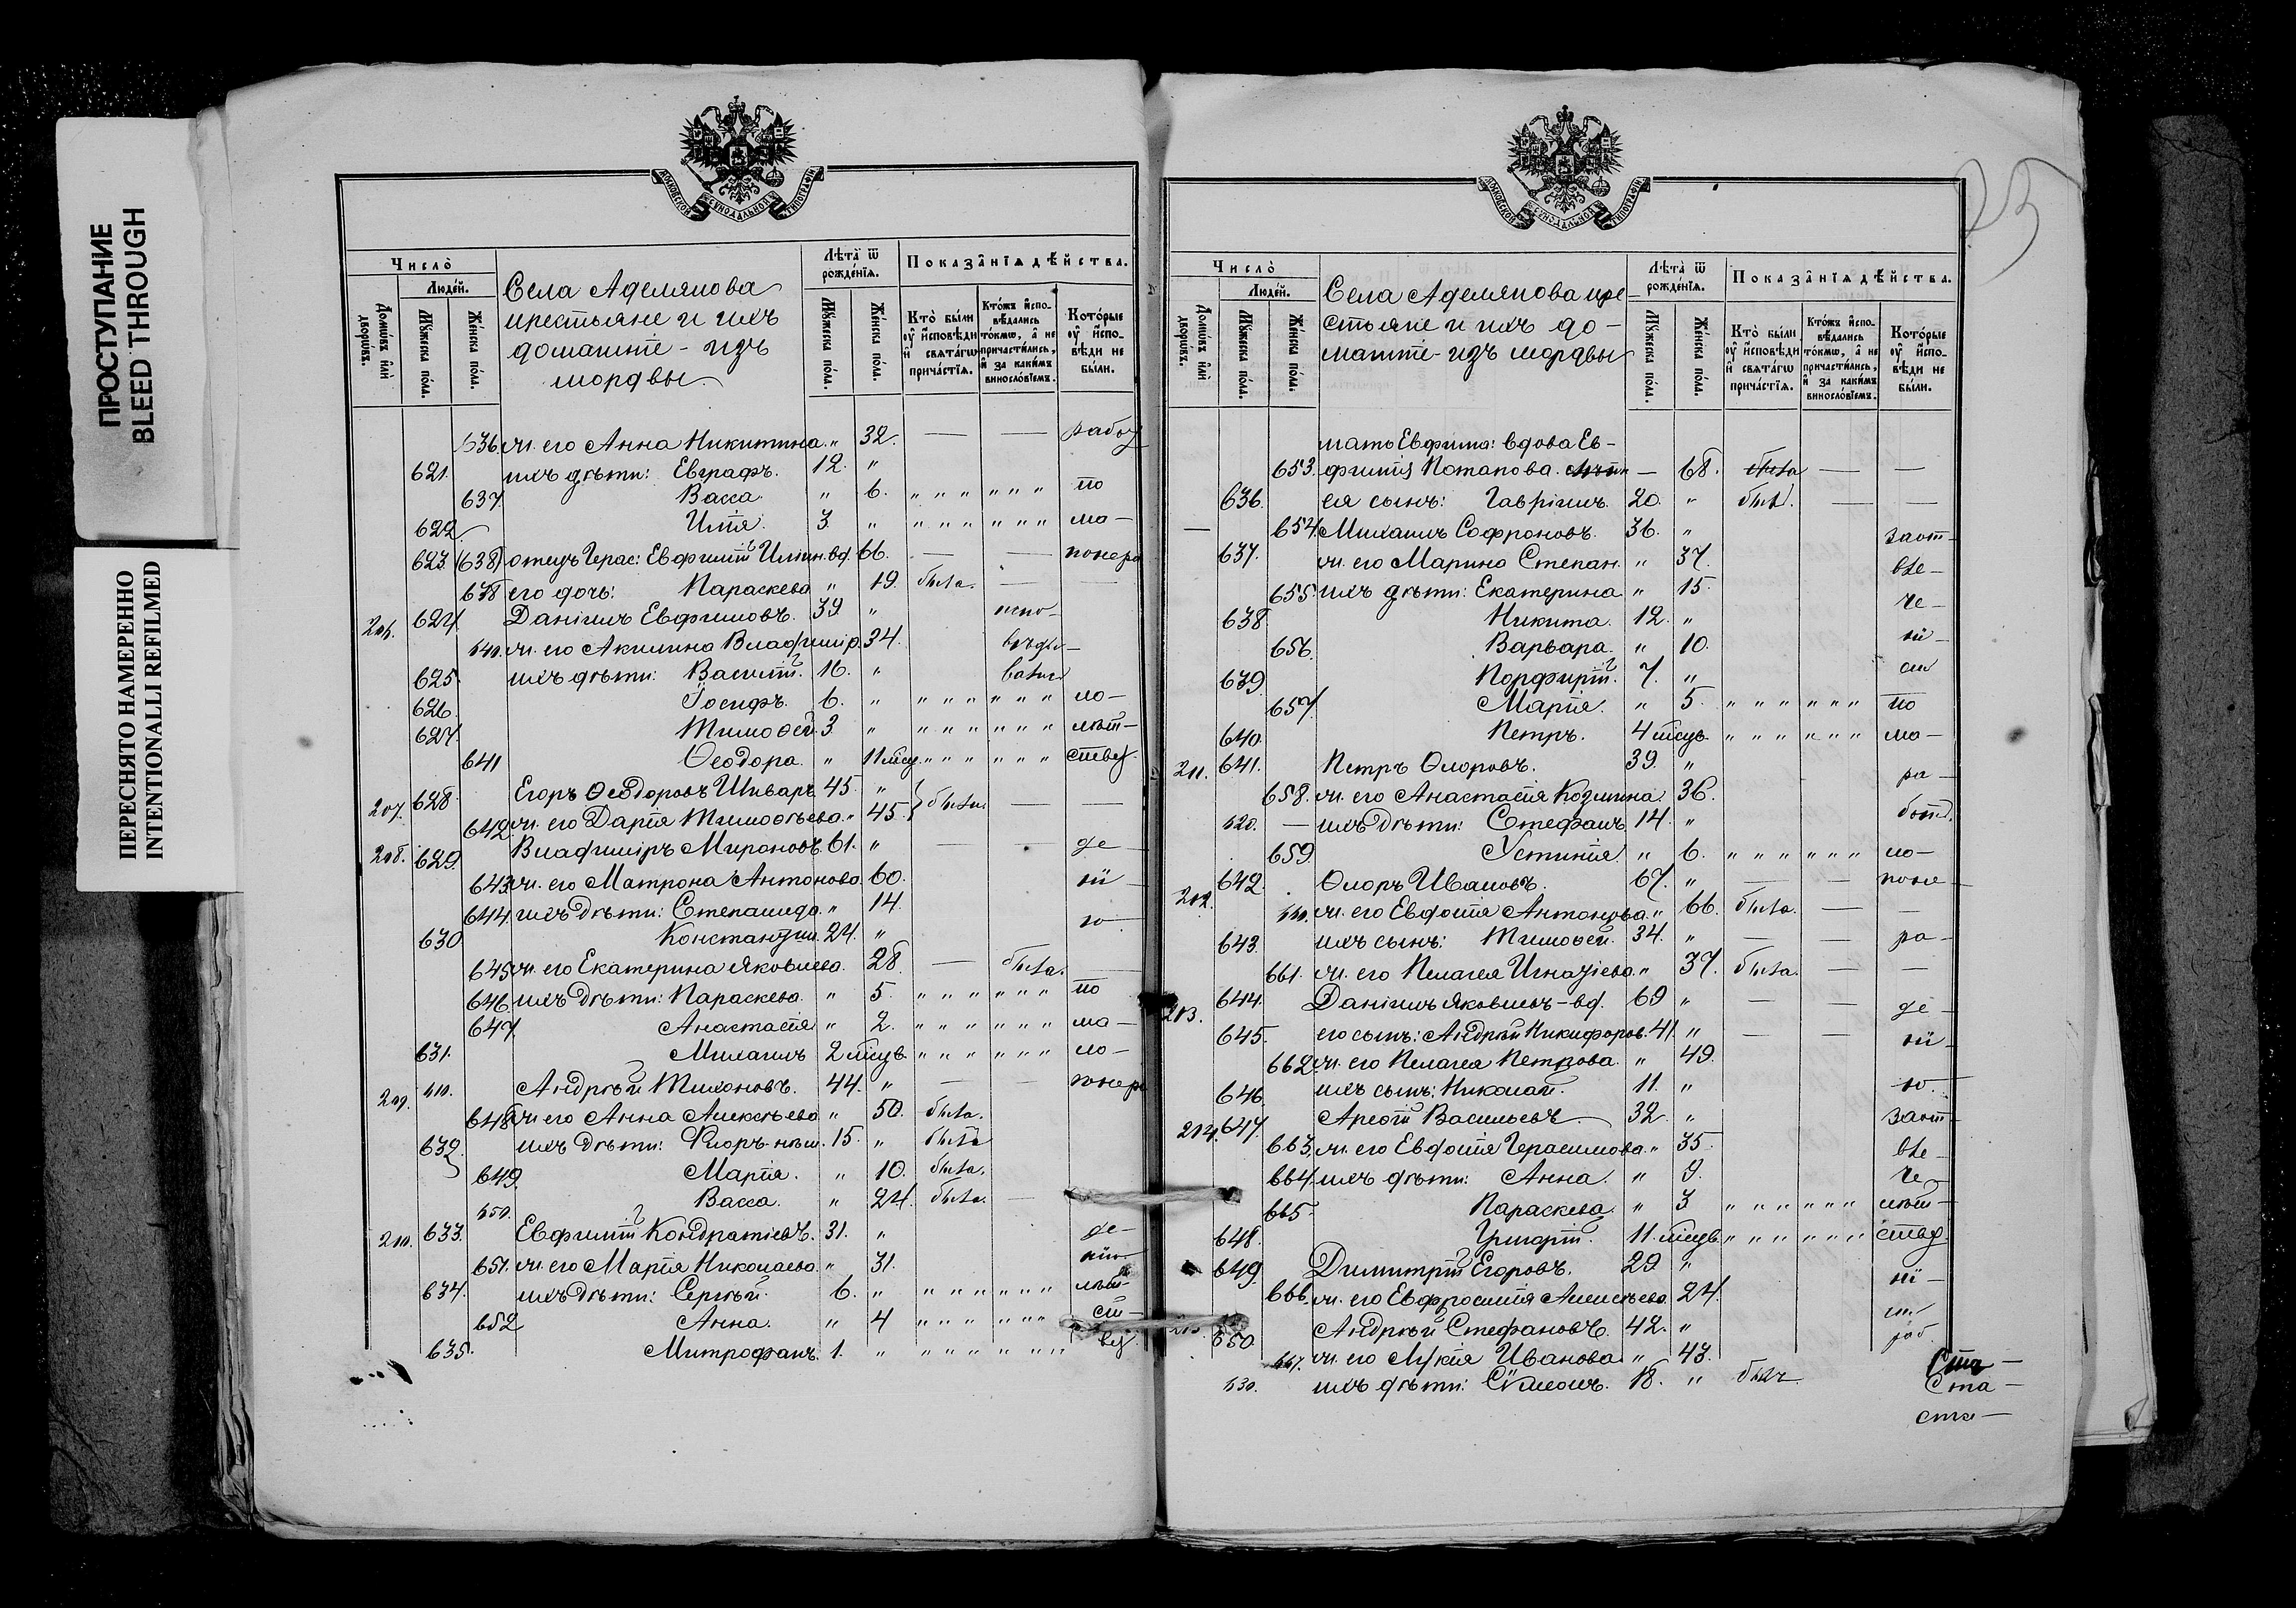 ПРОСТУПАНИЕ
BLEED THROUGH
ПЕРЕСНЯТО НАМЕРЕННО
INTENTIONALLI REFILMED
МОСКОВСКОЙ СѴНОДАЛЬНОЙ ТИПОГРАФІИ
Число̀
Люде́й.
Домѡ́въ и҆лѝ дворѡ́въ.
Мꙋ́жеска по́ла.
Же́нска по́ла.
Села Аделякова
крестьяне и ихъ
домашніе - изъ
мордвы.
Лѣ́та ѿ рожде́нїѧ.
Мꙋ́жеска по́ла.
Же́нска по́ла.
Показа̑нїѧ дѣ́йства.
Кто̀ бы́ли ᲂу҆ и҆́сповѣди и҆ свѧта́гѡ прича́стїѧ.
Кто́жъ и҆спо-вѣ́дались то́кмѡ, а҆ не причасти́лись, и҆ за каки́мъ винослѡ́вїемъ.
Кото́рые ᲂу҆ и҆́спо-вѣди не бы́ли.
636. ж. его Анна Никитина. " 32. — — работ
621. ихъ дѣти: Евграфъ. 12. "
637. Васса. " 6. " " " " " " по
622. Илія. 3 " " " " " " " ма-
623. (638) отецъ Герас: Евфимій Илиин. вд. 66. — — понера
638 его дочь: Параскева " 19. была. — —
206. 624. Даніилъ Евфимовъ. 39 " испо-
640. ж. его Акилина Владимір. 34. вѣды-
625. ихъ дѣти: Василій. 16. " вались
626. Іосифъ. 6. " " " " " " " ло-
627. Тимоѳей. 3 " " " " " " " лѣт-
641 Ѳеодора. " 11 мѣсц. " " " " " " ству.
207. 628. Егоръ Ѳеодоровъ Шиваръ 45. "
642. ж. его Дарія Тимоѳѣева. " 45. } были. — —
208. 629. Владиміръ Мироновъ. 61. " — — де
643. ж. его Матрона Антонова. 60. нії
644. ихъ дѣти: Степанида. " 14. ю
630 Константин. 24. "
645. ж. его Екатерина Яковлева. 28. — была. —
646. ихъ дѣти: Параскева. " 5. " " " " " " по
647. Анастасія " 2. " " " " " " ма-
631. Михаилъ 2 мѣсцъ " " " " " " ло-
209. 610. Андрѣй Тихоновъ. 44. " — — понера
648. ж. его Анна Алексѣева " 50. была.
632. ихъ дѣти: 15. " былъ
649. Марія. " 10. была.
650. Васса. " 24. была. —
210. 633. Евфимій Кондратіевъ. 31. " де-
651. ж. его Марія Николаева. " 31.
634. ихъ дѣти: Сергѣй. 6. " " " " " " " лѣт-
652 Анна. " 4 " " " " " "
635. Митрофанъ. 1. " " " " " " "
МОСКОВСКОЙ СѴНОДАЛЬНОЙ ТИПОГРАФІИ
25
Число̀
Люде́й.
Домѡ́въ и҆лѝ дворѡ́въ.
Мꙋ́жеска по́ла.
Же́нска по́ла.
Села Аделякова кре-
стьяне и ихъ до-
машніе - изъ мордвы
Лѣ́та ѿ рожде́нїѧ.
Мꙋ́жеска по́ла.
Же́нска по́ла.
Показа̑нїѧ дѣ́йства.
Кто̀ бы́ли ᲂу҆ и҆́сповѣди и҆ свѧта́гѡ прича́стїѧ.
Кто́жъ и҆спо-вѣ́дались то́кмѡ, а҆ не причасти́лись, и҆ за каки́мъ винослѡ́вїемъ.
Кото́рые ᲂу҆ и҆́спо-вѣди не бы́ли.
мать Евфима: вдова Ев-
653. фимія Потапова. — 68. была — —
636. ея сынъ: Гавріилъ. 20. " былъ. — —
654. Михаилъ Софроновъ. 36. " за от-
637. ж. его Марина Степан. " 37. вле-
655. ихъ дѣти: Екатерина " 15. че-
638. Никита. 12. " ні-
656. Варвара. " 10. ем
639. Порфирій. 7. "
657. Марія. " 5. " " " " " " по
640. Петръ. 4 мѣсцъ " " " " " " ма-
211. 641. Петръ Ѳлоровъ. 39. " ра-
658. ж. его Анастасія Козмина. 36. ботѣ.
620. — ихъ дѣти: Стефанъ 14. "
659. Устинія. " 6. " " " " " " ло-
212. 642. Ѳлоръ Ивановъ. 67. " — — поне-
660. ж. его Евдокія Антонова. " 66. была. — —
643. ихъ сынъ: Тимоѳей. 34. " — — ра-
661. ж. его Пелагея Игнатіева. " 37. была. — —
213. 644. Даніилъ Яковлевъ - вд. 69 " — — де-
645. его сынъ: Андрѣй Никифоров. 41. " — — нії-
662. ж. его Пелагея Петрова. " 49.
646. ихъ сынъ: Николай. 11. " ю.
214. 647. Васильевъ. 32. " за от-
663. ж. его Евдокія Герасимова. " 35. вле-
664. ихъ дѣти: Анна. " 9. че
665. Параскева. " 3 " " " " " " лѣт-
648. Григорій. 11. мѣсцъ " " " " " " ству.
649. Димитрій Егоровъ. 29. " ні-
666. ж. его Евфросинія Алексѣева. 24.
215. 650 Андрѣй Стефановъ. 42. " раб.
667. ж. его Лукія Иванова. " 43.
630. ихъ дѣти: Сѷмеонъ. 18. " былъ.
Ста-
сти-